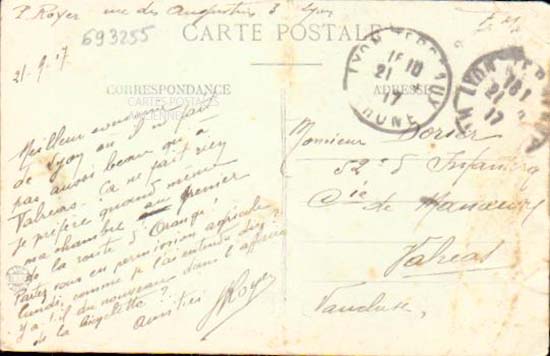 P. Royer rue des Augustins 3 Lyon
F.M.
693255
CARTE POSTALE
21-9-17
CORRESPONDANCE
ADRESSE
CARTES POSTALES
ANCIENNES
LYON TERREAUX
21
17
RHONE
LYON
21
17
Meilleur souvenir
de Lyon où il ne fait
pas aussi beau qu'à
Valréas. Ça ne fait rien
je préfère quand même
ma chambre au premier
de la route d'Orange!
Partez vous en permission agricole
lundi comme je l'ai entendu dire?
Y a t'il du nouveau dans l'affaire
de la bicyclette?
amitiés
Royer
Monsieur Dorier
52e d'Infanterie
Cie de
Valréas
Vaucluse.